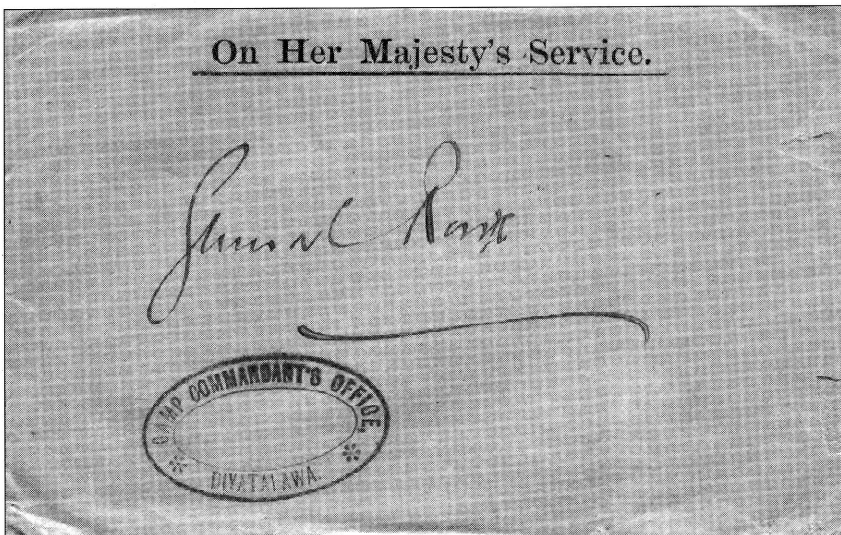 On Her Majesty's Service.
General Roux
CAMP COMMANDANT'S OFFICE,
DIYATALAWA.